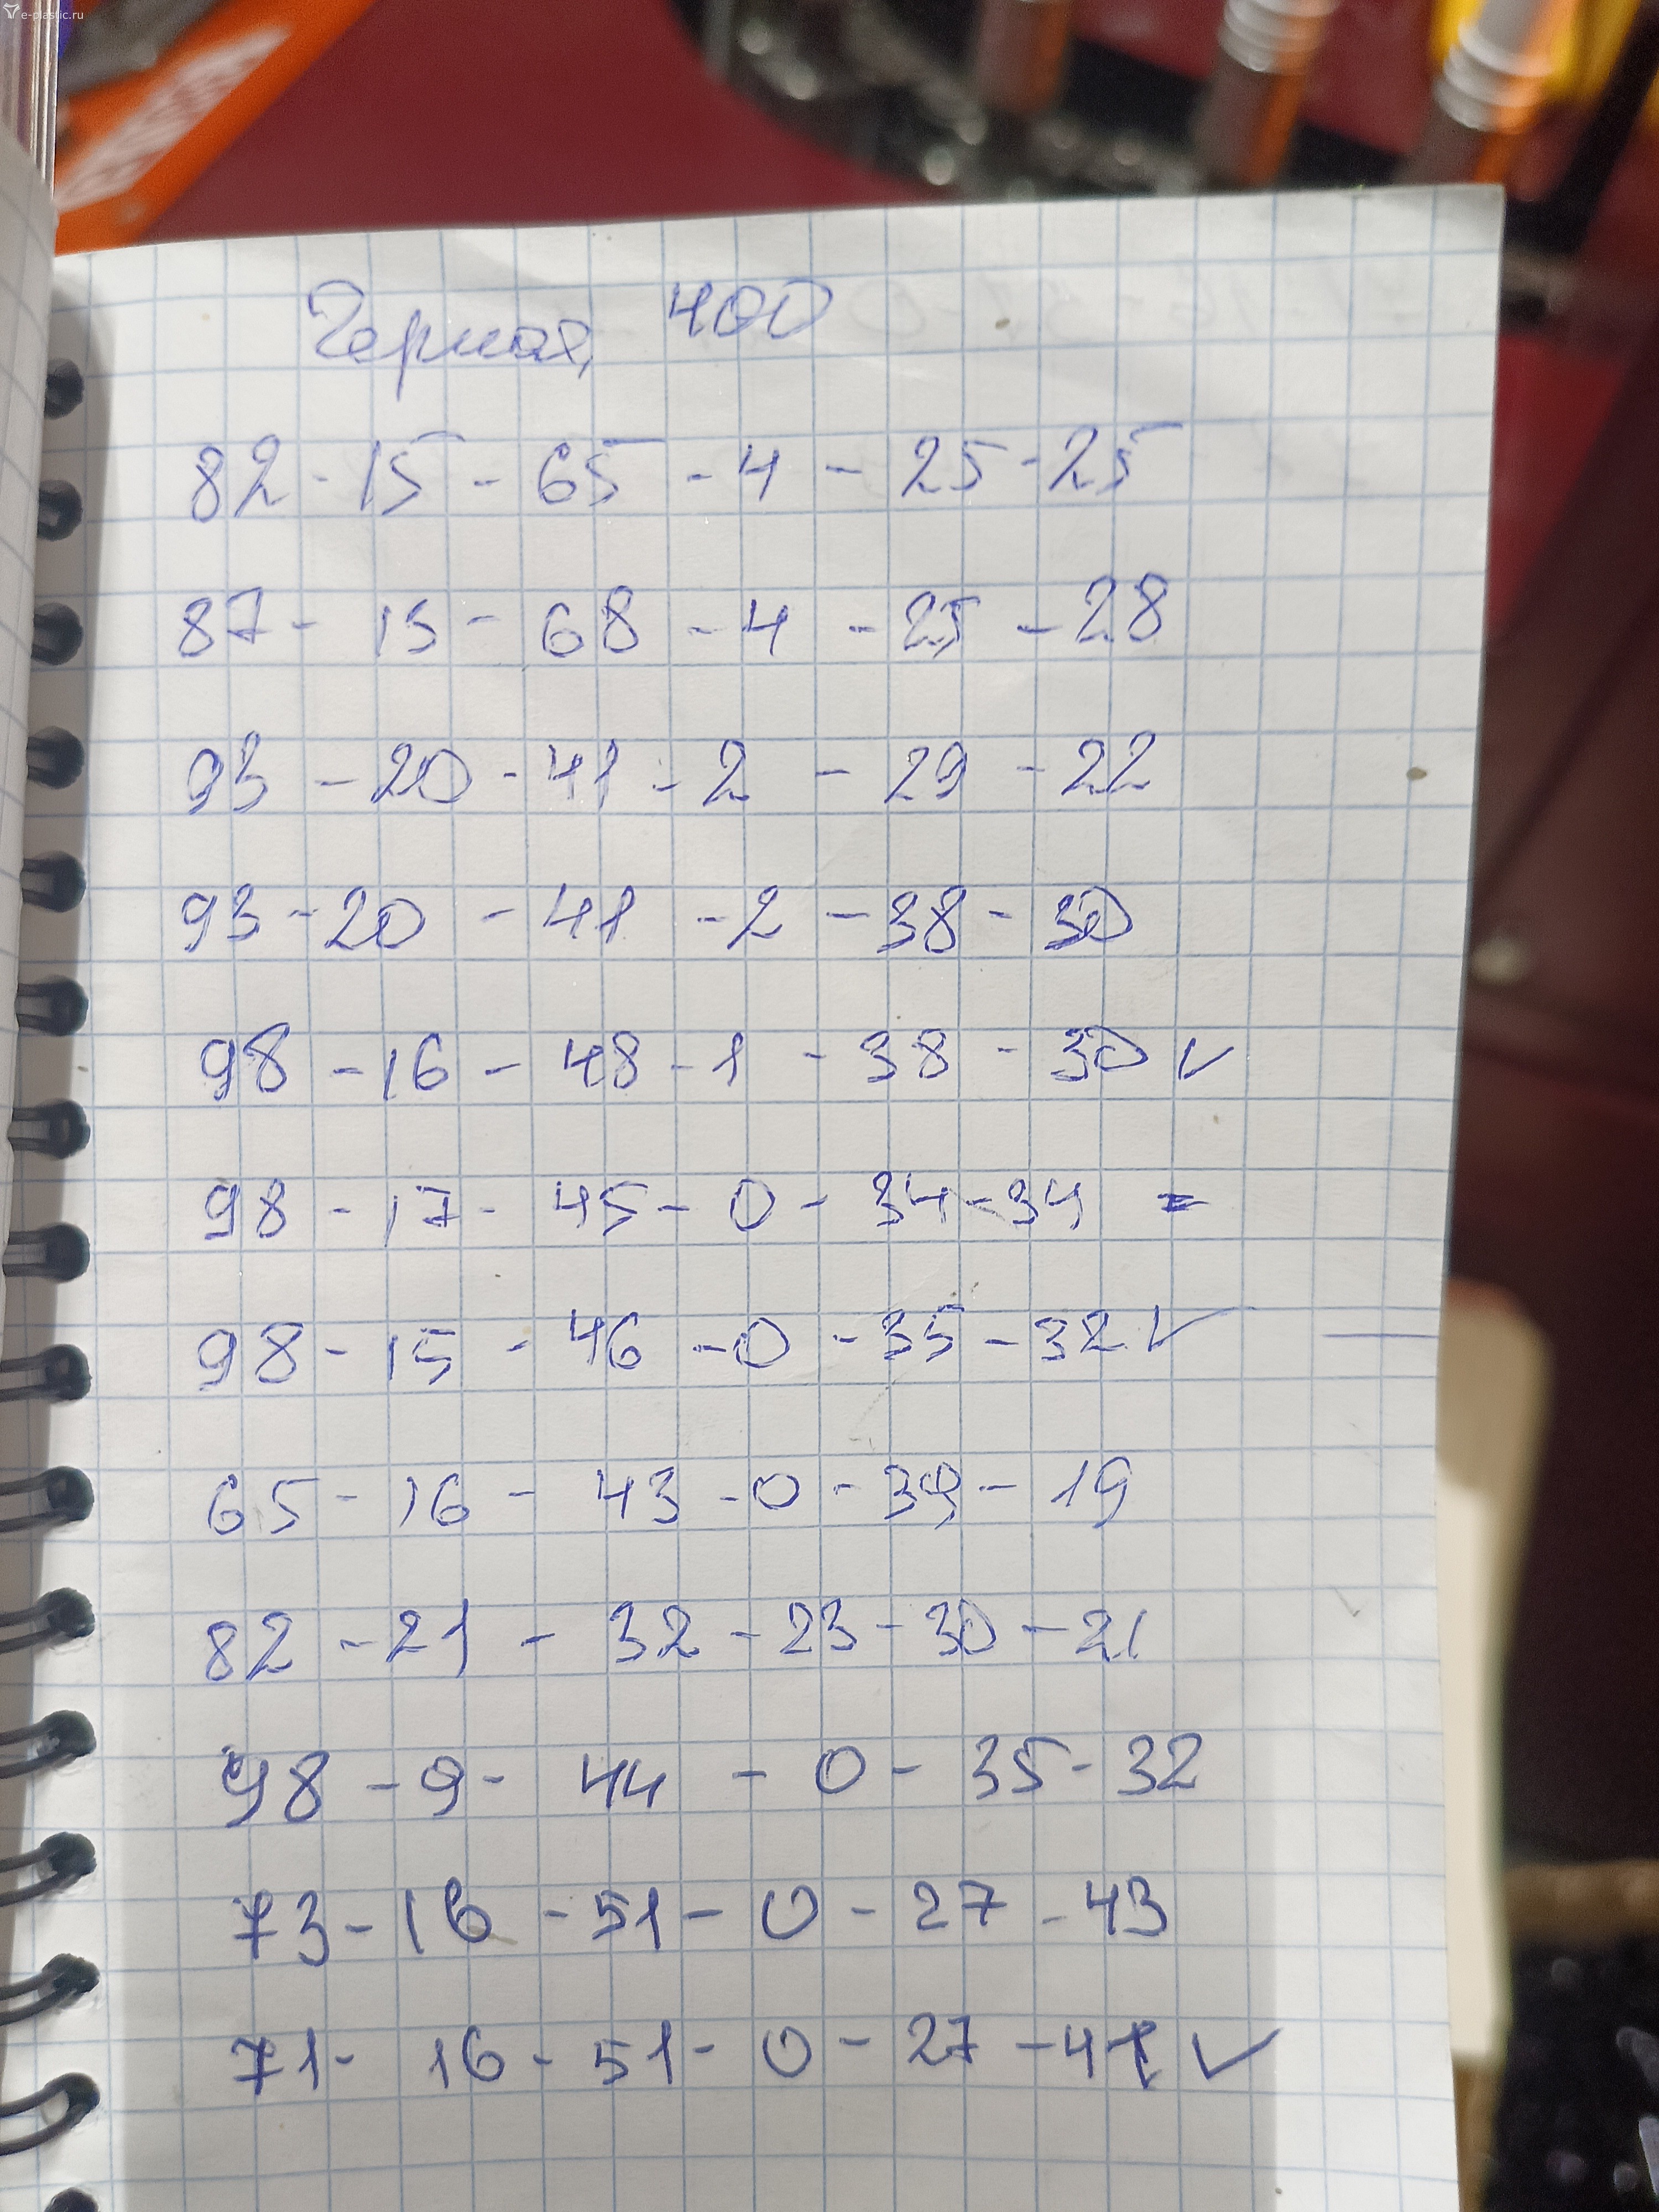 e-plastic.ru
Черная, 400
82 - 15 - 65 - 4 - 25 - 25
87 - 15 - 68 - 4 - 25 - 28
93 - 20 - 41 - 2 - 29 - 22
93 - 20 - 41 - 2 - 38 - 30
98 - 16 - 48 - 1 - 38 - 30 ✓
98 - 17 - 45 - 0 - 34 - 34 =
98 - 15 - 46 - 0 - 35 - 32 ✓
65 - 16 - 43 - 0 - 39 - 19
82 - 21 - 32 - 23 - 30 - 21
98 - 9 - 44 - 0 - 35 - 32
73 - 16 - 51 - 0 - 27 - 43
71 - 16 - 51 - 0 - 27 - 41 ✓